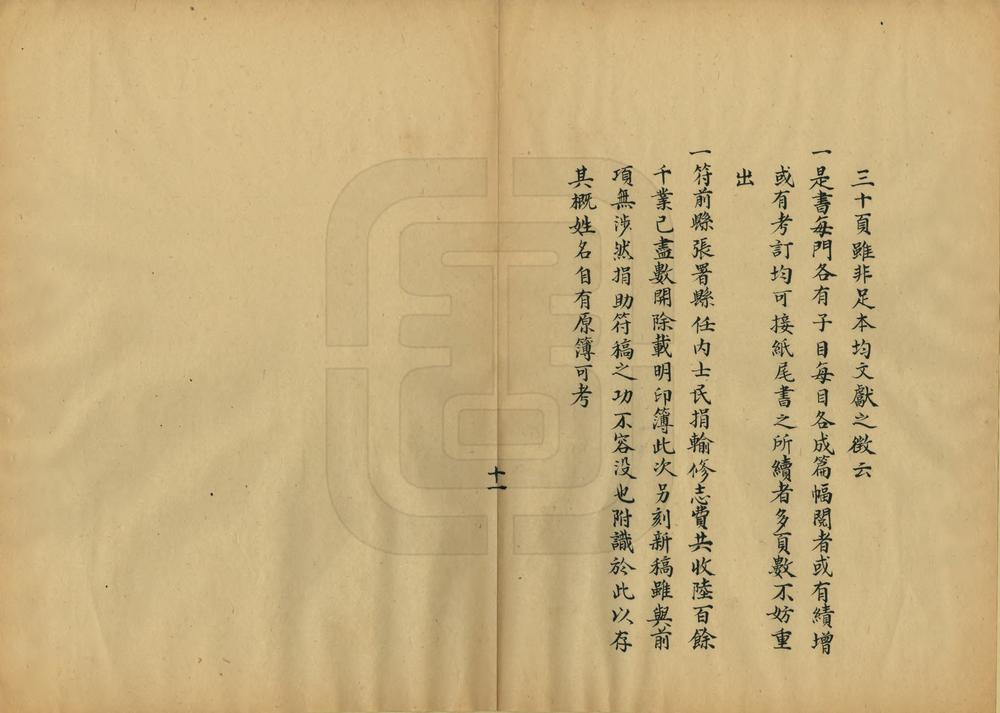 三十頁雖非足本均文獻之徵云
一是書每門各有子目每目各成篇幅閱者或有績增
或有考訂均可接紙尾書之所續者多頁數不妨重
出
一符前縣張署縣任內士民捐輸修志費共收陸百餘
千業已盡數開除載明印簿此次另刻新稿雖與前
項無涉然捐助符稿之功不容没也附識於此以存
其概姓名自有原簿可考
十一